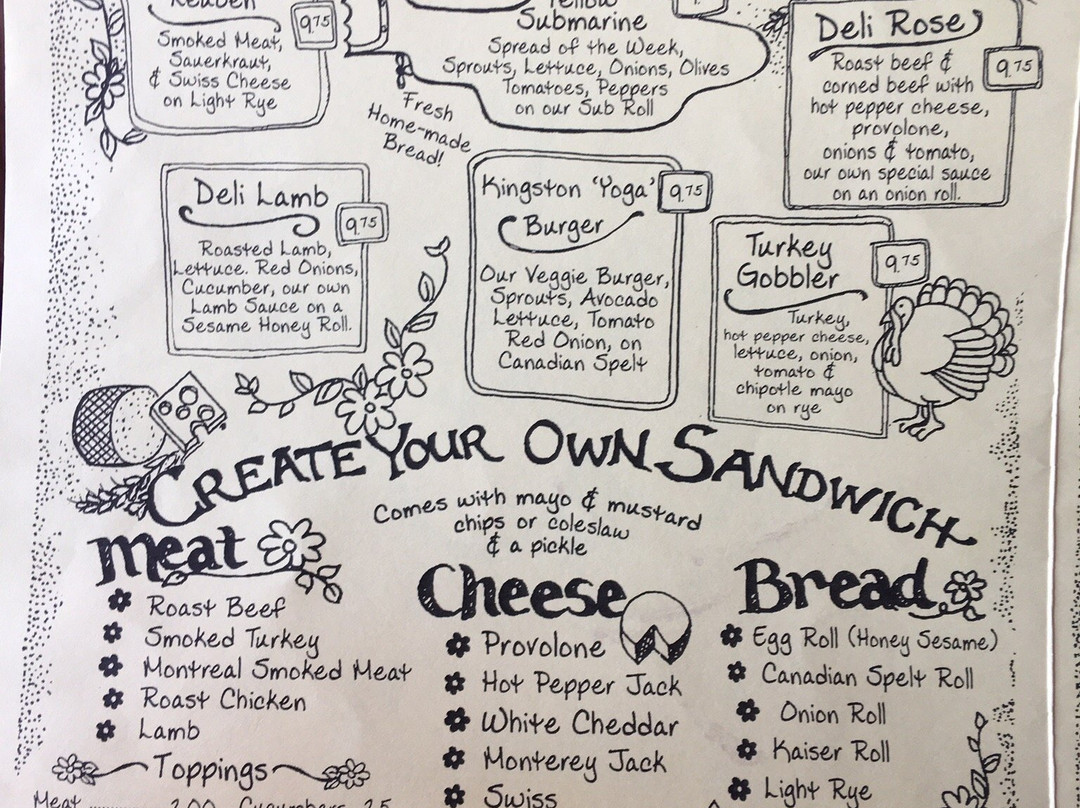 Reuben
9.75
Smoked Meat,
Sauerkraut,
& Swiss Cheese
on Light Rye
Fresh
Home-made
Bread!
Yellow
Submarine
Spread of the Week,
Sprouts, Lettuce, Onions, Olives
Tomatoes, Peppers
on our Sub Roll
Deli Rose
9.75
Roast beef &
corned beef with
hot pepper cheese,
provolone,
onions & tomato,
our own special sauce
on an onion roll.
Deli Lamb
9.75
Roasted Lamb,
Lettuce. Red Onions,
Cucumber, our own
Lamb Sauce on a
Sesame Honey Roll.
Kingston 'Yoga'
Burger
9.75
Our Veggie Burger,
Sprouts, Avocado
Lettuce, Tomato
Red Onion, on
Canadian Spelt
Turkey
Gobbler
9.75
Turkey,
hot pepper cheese,
lettuce, onion,
tomato &
chipotle mayo
on rye
CREATE YOUR OWN SANDWICH
Comes with mayo & mustard
chips or coleslaw
& a pickle
Meat
Roast Beef
Smoked Turkey
Montreal Smoked Meat
Roast Chicken
Lamb
Toppings
Meat ........ 2.00 Cucumbers .25
Cheese
Provolone
Hot Pepper Jack
White Cheddar
Monterey Jack
Swiss
Bread
Egg Roll (Honey Sesame)
Canadian Spelt Roll
Onion Roll
Kaiser Roll
Light Rye